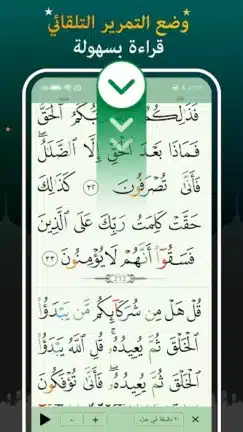 وضع التمرير التلقائي
قراءة بسهولة
فَذَٰلِكُمُ ٱللَّهُ رَبُّكُمُ ٱلۡحَقُّۖ
فَمَاذَا بَعۡدَ ٱلۡحَقِّ إِلَّا ٱلضَّلَٰلُۖ
فَأَنَّىٰ تُصۡرَفُونَ ٣٢ كَذَٰلِكَ
حَقَّتۡ كَلِمَتُ رَبِّكَ عَلَى ٱلَّذِينَ
فَسَقُوٓاْ أَنَّهُمۡ لَا يُؤۡمِنُونَ ٣٣
212
قُلۡ هَلۡ مِن شُرَكَآئِكُم مَّن يَبۡدَؤُاْ
ٱلۡخَلۡقَ ثُمَّ يُعِيدُهُۥۚ قُلِ ٱللَّهُ يَبۡدَؤُاْ
ٱلۡخَلۡقَ ثُمَّ يُعِيدُهُۥۖ فَأَنَّىٰ تُؤۡفَكُونَ
- +